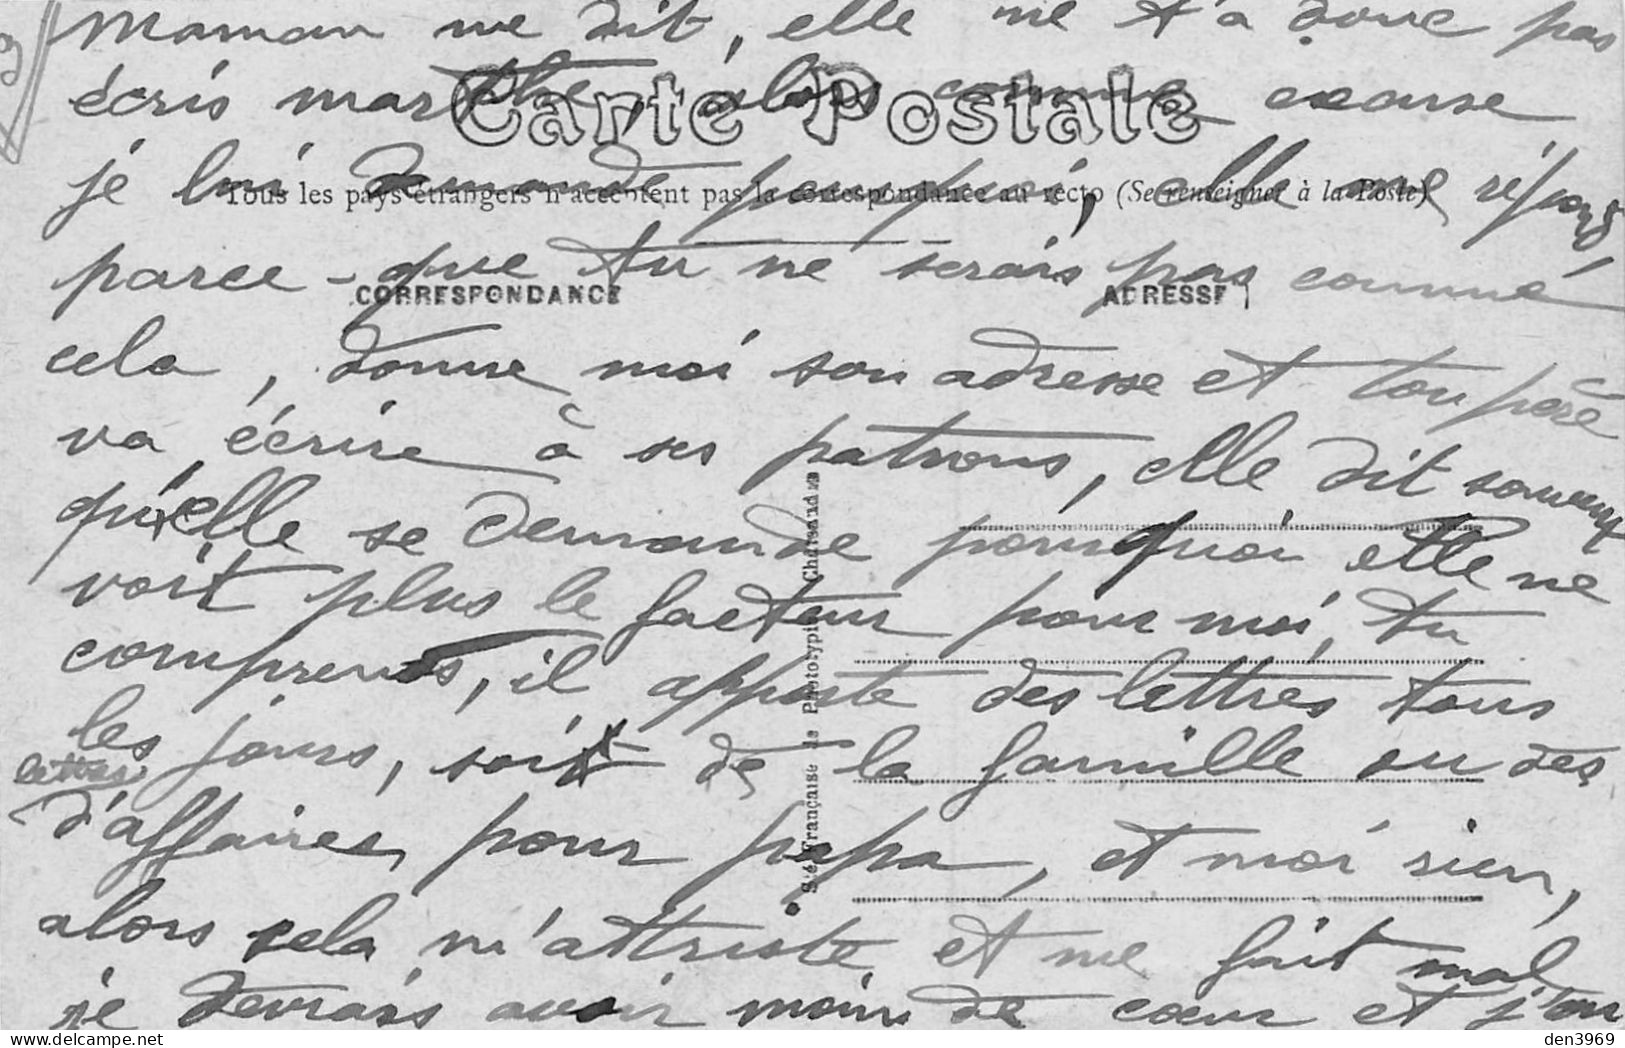 3
Maman me dit, elle ne t'a donc pas
écris marthe, alors comme cause
Carte Postale
je lui demande pourquoi, elle me répond,
Tous les pays étrangers n'acceptent pas la correspondance au recto (Se renseigner à la Poste)
parce-que tu ne serais pas comme
CORRESPONDANCE ADRESSE
cela, donne moi son adresse et ton père
va écrire à ses patrons, elle dit souvent
qu'elle se demande pourquoi elle ne
voit plus le facteur pour moi, tu
comprends, il apporte des lettres tous
les jours, soit de la famille ou des
lettres
d'affaires pour papa, et moi rien,
alors cela m'attriste et me fait mal,
je devrais avoir moin de cœur et j'en
Sté Française de Phototypie
den3969